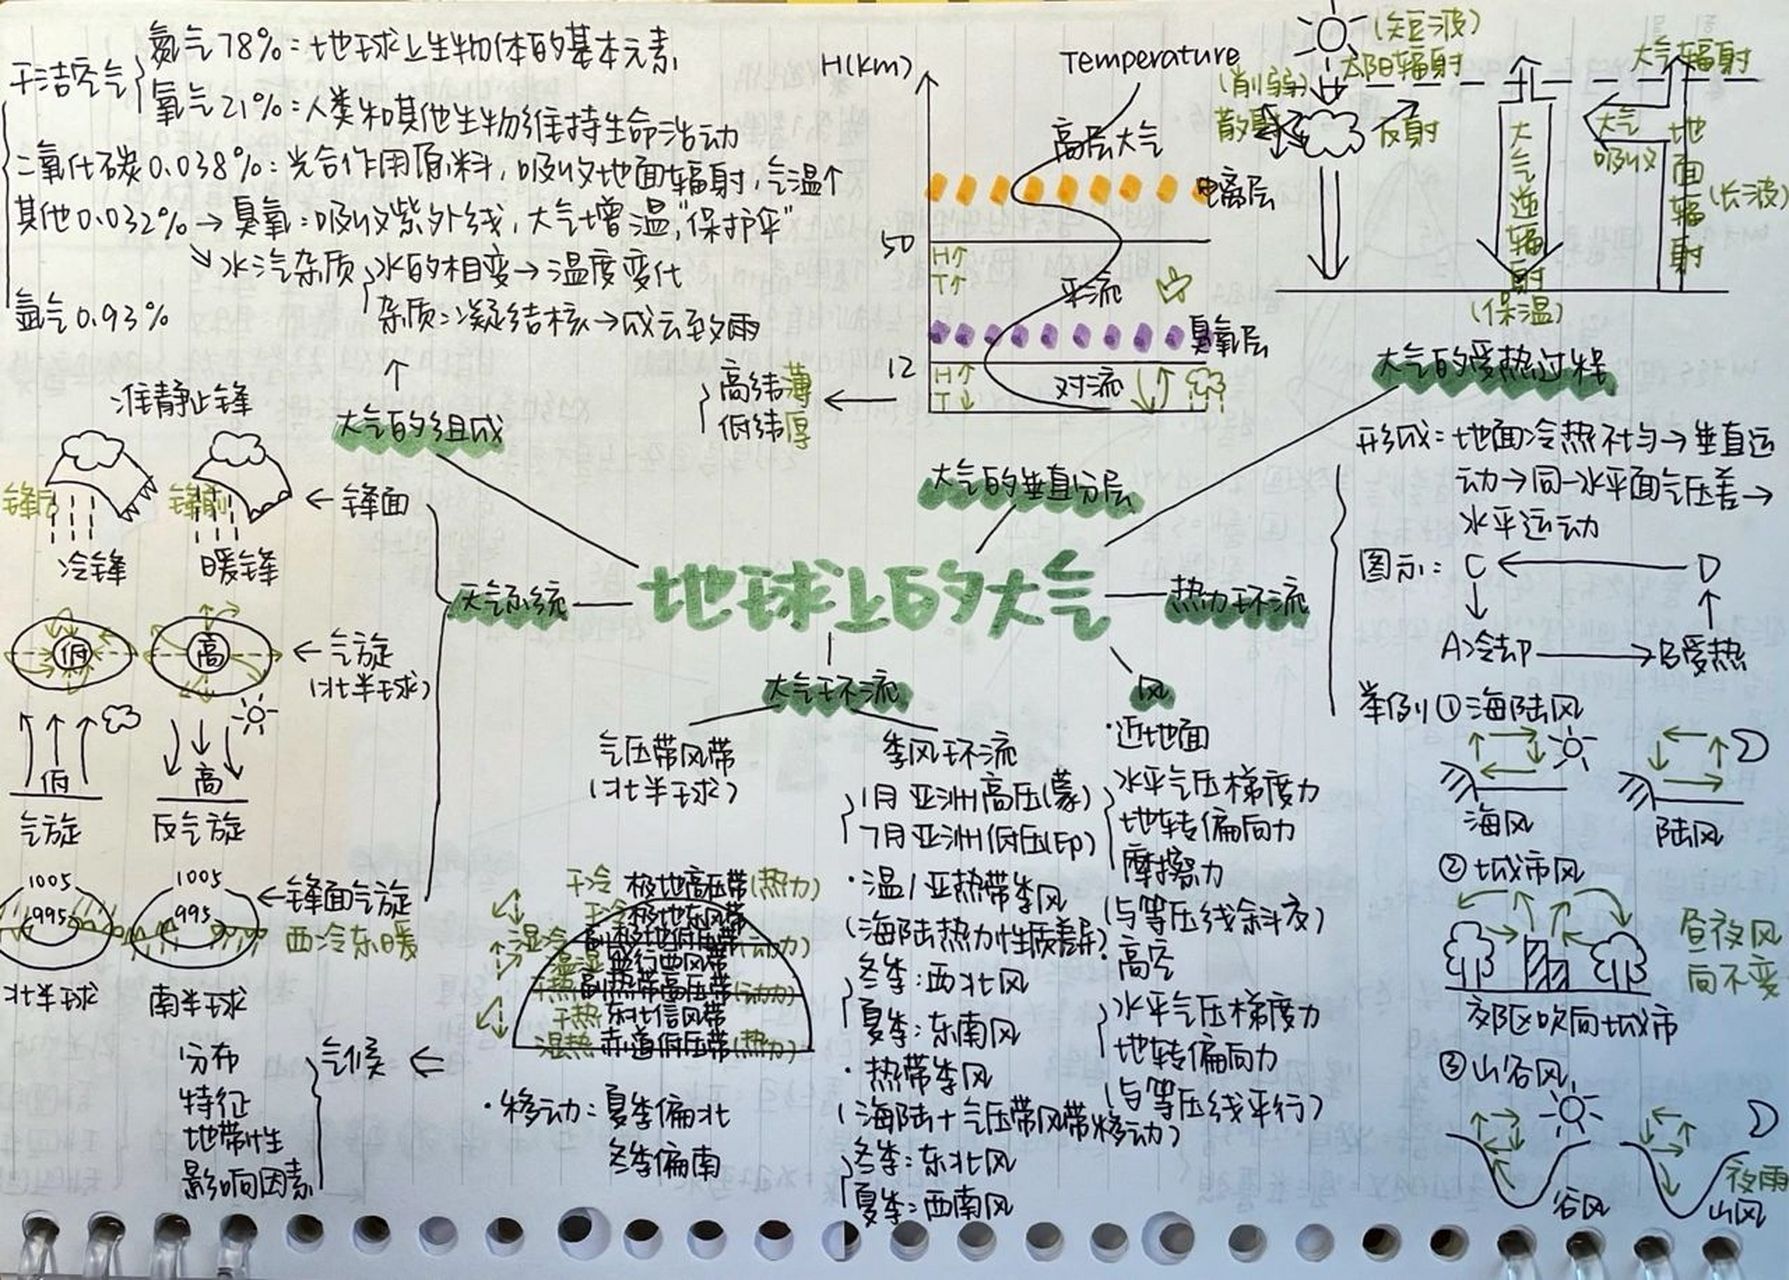 干洁空气
氮气78%:地球上生物体的基本元素
氧气21%:人类和其他生物维持生命活动
二氧化碳0.038%:光合作用原料,吸收地面辐射,气温↑
其他0.032%→臭氧:吸收紫外线,大气增温,"保护伞"
↘水汽杂质
水的相变→温度变化
杂质:凝结核→成云致雨
氩气0.93%
↑
大气的组成
H(km)
Temperature
高层大气
电离层
50
H↑
T↑
平流
臭氧层
12
H↑
T↓
对流
高纬薄
低纬厚
←
大气的垂直分层
(短波)
太阳辐射
(削弱)
散射
反射
大气逆辐射
(保温)
大气辐射
大气
吸收
地面辐射
(长波)
大气的受热过程
准静止锋
锋后
锋前
←锋面
冷锋
暖锋
低
高
←气旋
(北半球)
低
高
气旋
反气旋
1005
995
1005
995
←锋面气旋
西冷东暖
北半球
南半球
天气系统
地球上的大气
热力环流
形成:地面冷热不均→垂直运
动→同一水平面气压差→
水平运动
图示:C←D
↓ ↑
A冷却→B受热
举例①海陆风
海风
陆风
②城市风
昼夜风
向不变
郊区吹向城市
③山谷风
谷风
夜雨
山风
大气环流
气压带风带
(北半球)
干冷 极地高压带(热力)
干冷 极地东风带
湿冷 副极地低压带(动力)
温湿 盛行西风带
干热 副热带高压带(动力)
干热 东北信风带
湿热 赤道低压带(热力)
·移动:夏季偏北
冬季偏南
气候 ⇐
分布
特征
地带性
影响因素
季风环流
1月亚洲高压(蒙)
7月亚洲低压(印)
·温/亚热带季风
(海陆热力性质差异)
冬季:西北风
夏季:东南风
·热带季风
(海陆+气压带风带移动)
冬季:东北风
夏季:西南风
风
·近地面
水平气压梯度力
地转偏向力
摩擦力
(与等压线斜交)
高空
水平气压梯度力
地转偏向力
(与等压线平行)